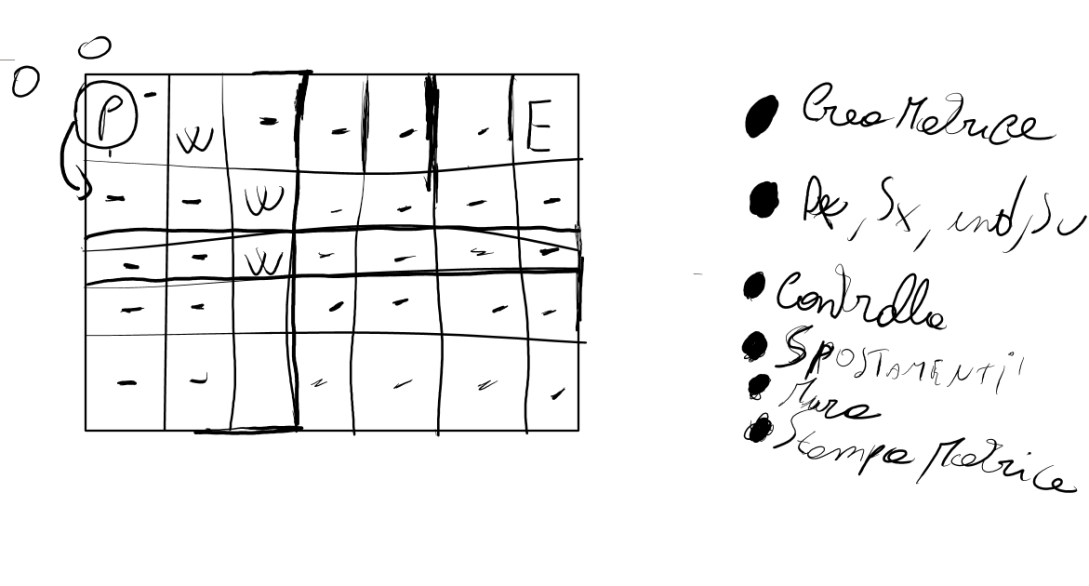 O
O
P - W - - - - E
- - W - - - -
- - W - - - -
- - - - - -
- - - - - -
Crea Matrice
Dx, Sx, ind, Su
Controllo
SPOSTAMENTI
Mura
Stampa Matrice